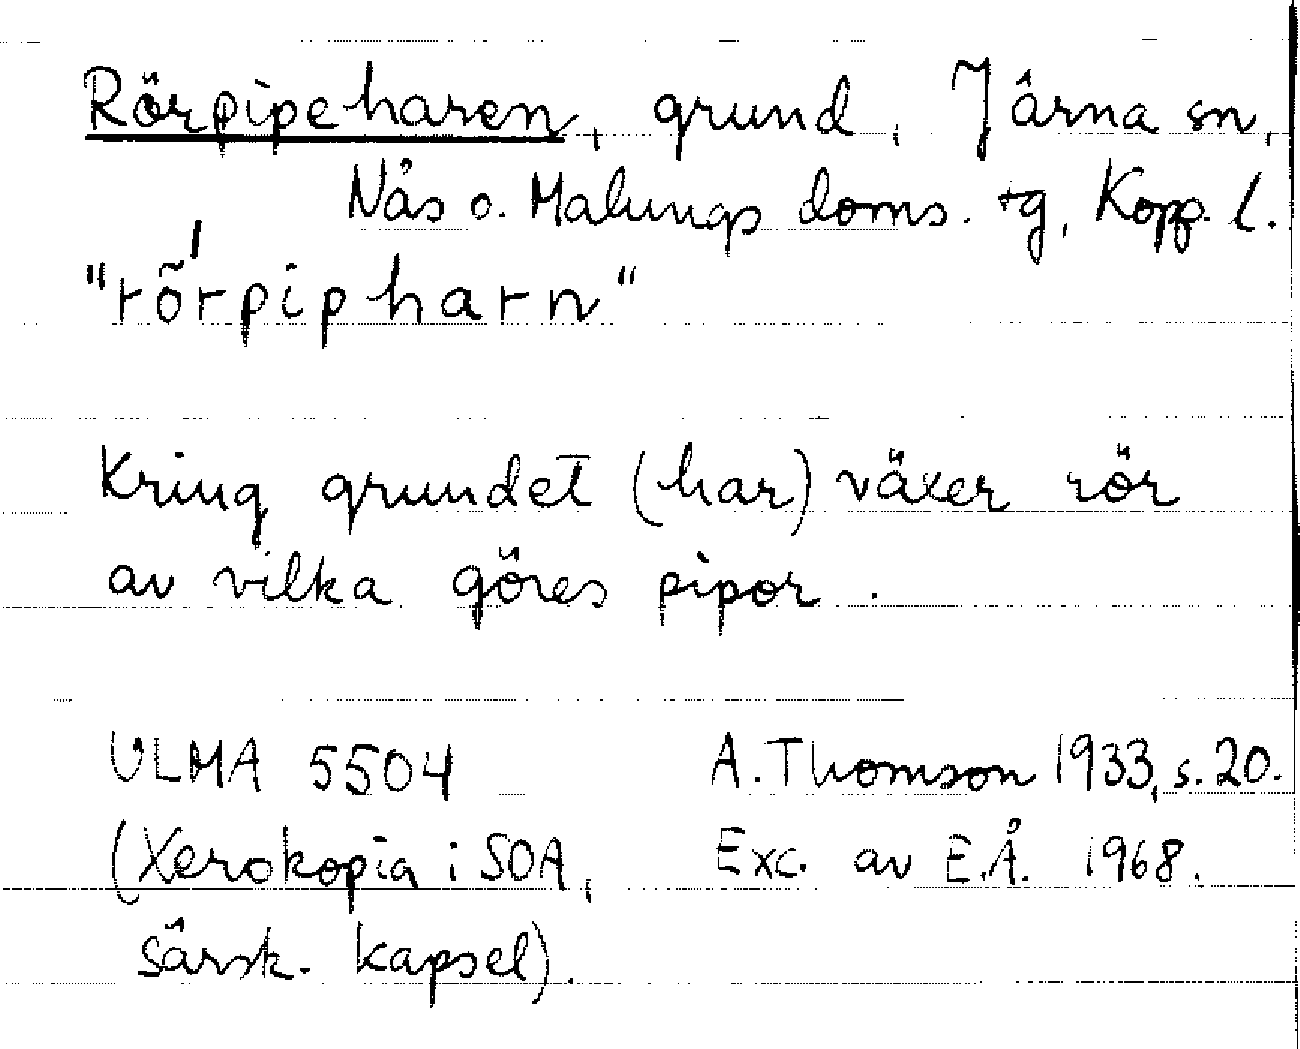 Rörpipeharen, grund, Järna sn,
Nås o. Malungs doms. tg, Kopp. l.
"rõ̍rpipharn"
Kring grundet (har) växer rör
av vilka göres pipor.
ULMA 5504 A. Thomson 1933, s. 20.
(Xerokopia i SOA, Exc. av E.Å. 1968.
särsk. kapsel).